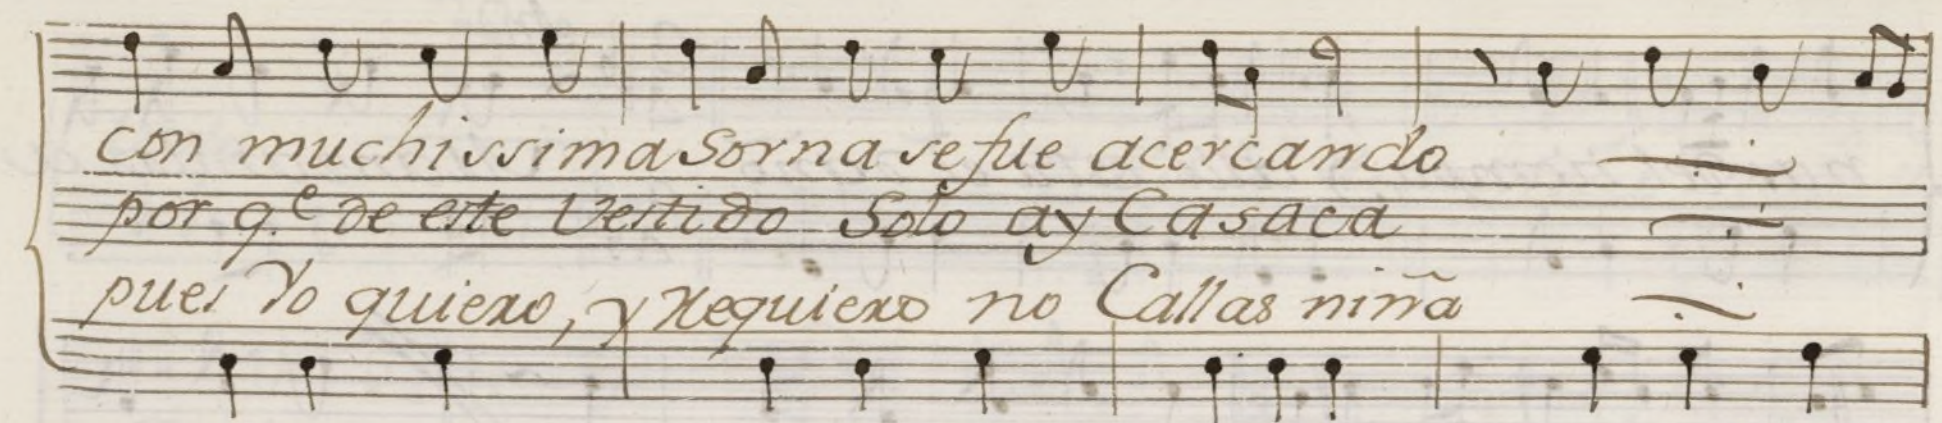 con muchissima Sorna se fue acercando
por q.e de este Vestido Solo ay Casaca
pues Yo quiero, y Requiero no Callas niña